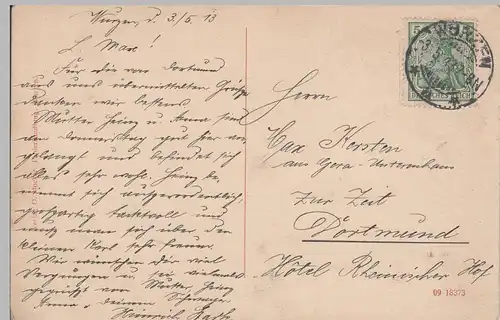 Wurzen, d. 3/5. 13
L. Max!
Für die von Dortmund
aus uns übermittelten Grüße
danken wir bestens
Mutter, Heinz u. Anna sind
am Donnerstag gut hier an-
gelangt und befindet sich
alles sehr wohl. Heinz be-
nimmt sich außerordentlich,
großartig taktvoll und
muß man sich über den
kleinen Kerl sehr freuen.
Wir wünschen dir viel
Vergnügen u. sei vielmals
gegrüßt von Mutter, Heinz
Anna u. deinem Schwager
Heinrich
WURZEN
5
Herrn
Max Kersten
aus Gera-Untermhaus
zur Zeit
Dortmund
Hôtel Rheinischer Hof
09 18373